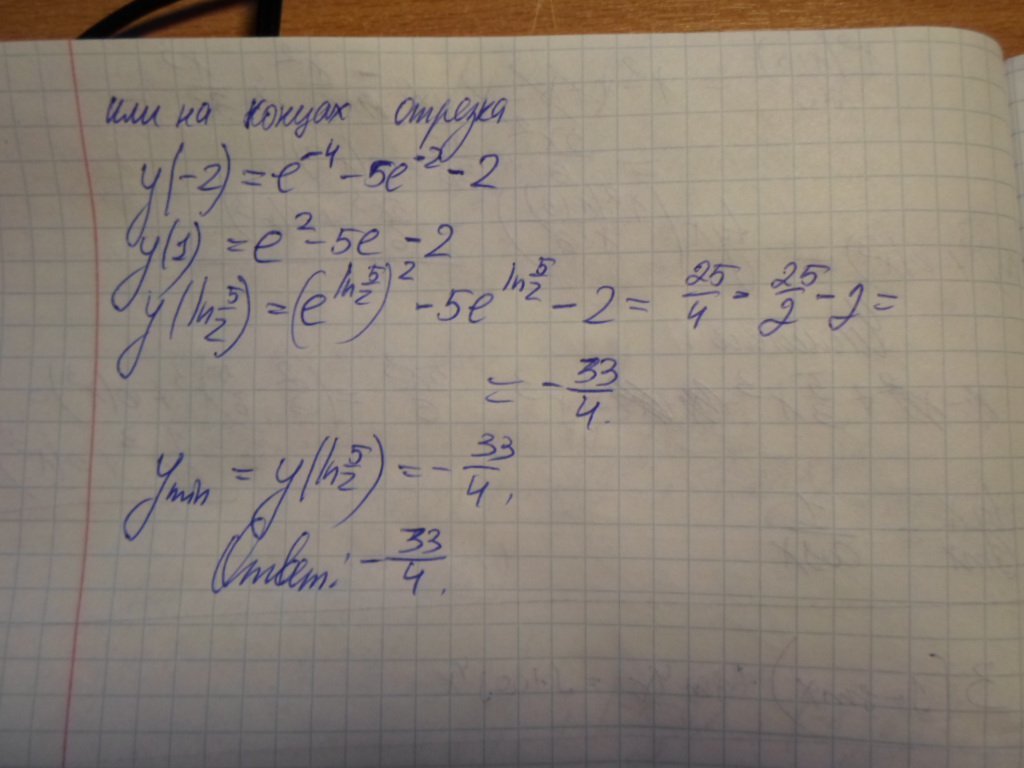 или на концах отрезка
y(-2) = e^-4 - 5e^-2 - 2
y(1) = e^2 - 5e - 2
y(ln 5/2) = (e^ln 5/2)^2 - 5e^ln 5/2 - 2 = 25/4 - 25/2 - 2 =
= - 33/4.
y min = y(ln 5/2) = - 33/4.
Ответ: - 33/4.